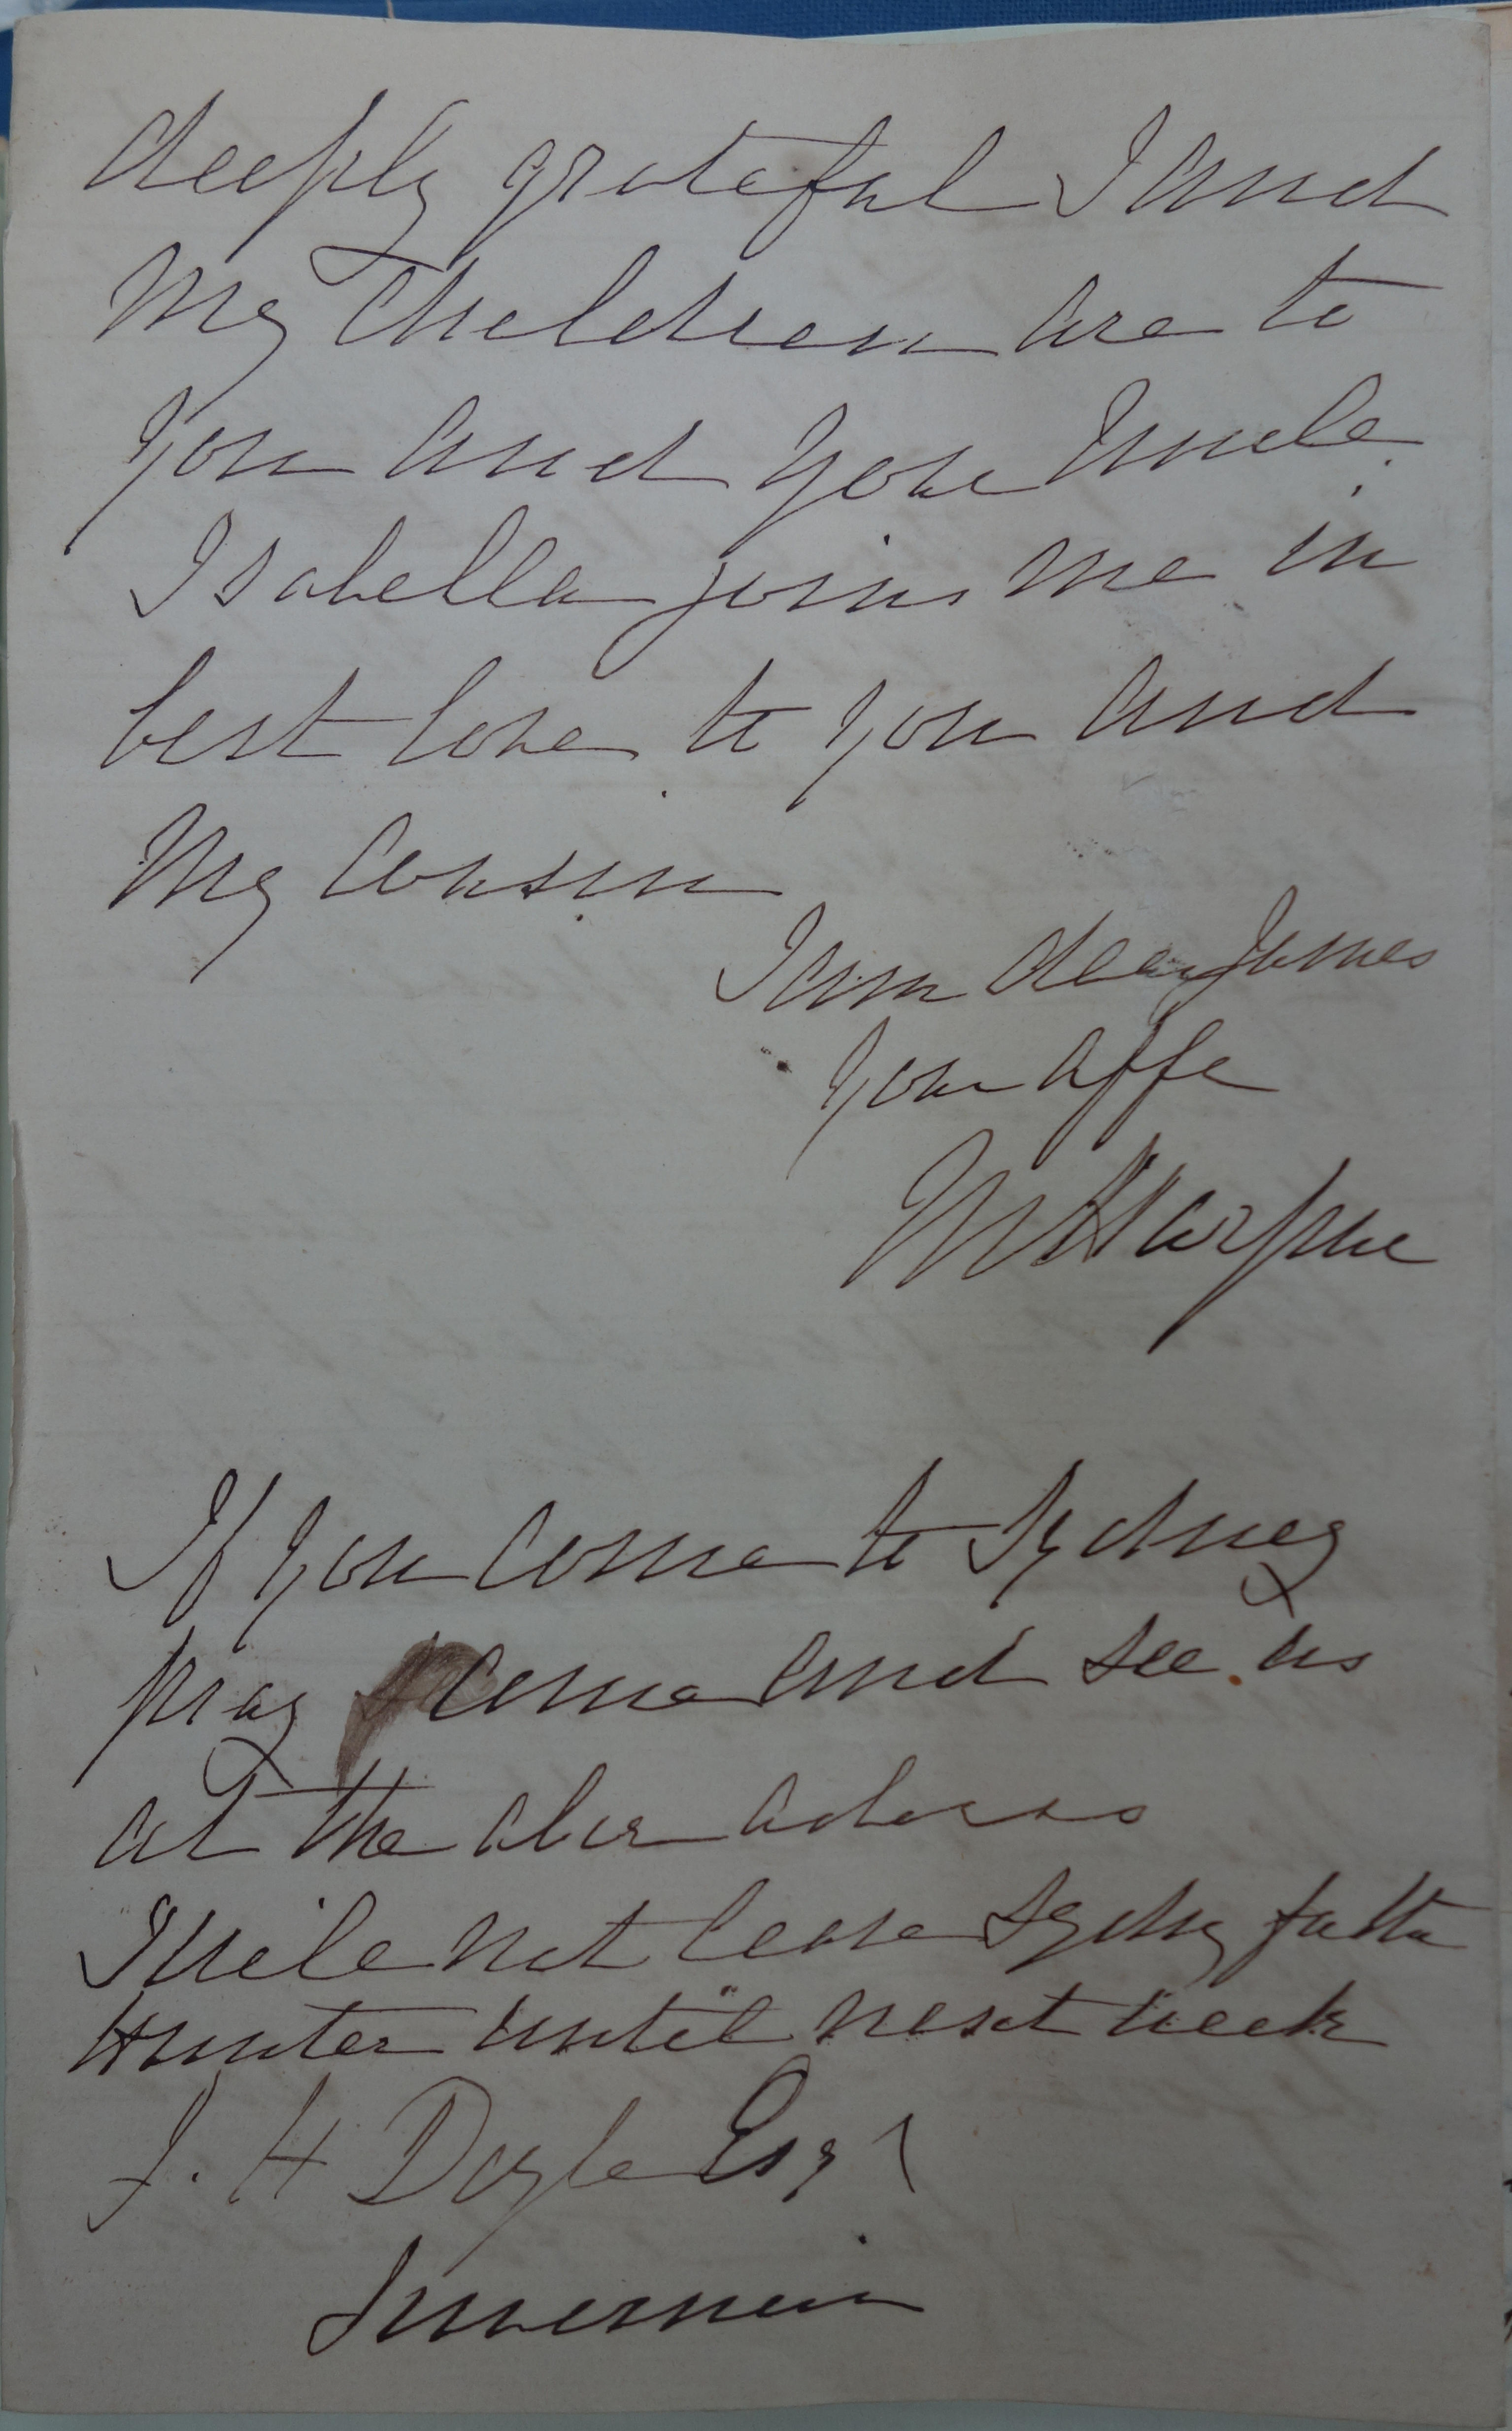 deeply grateful I and
My Children are to
you and your Uncle
Isabella joins me in
best love to you and
My Cousin
I am dear James
Your affe
If you come to Sydney
pray come and see us
at the above address
I will not leave Sydney for the
Hunter until next week
J. H Doyle Esqr
Invermein